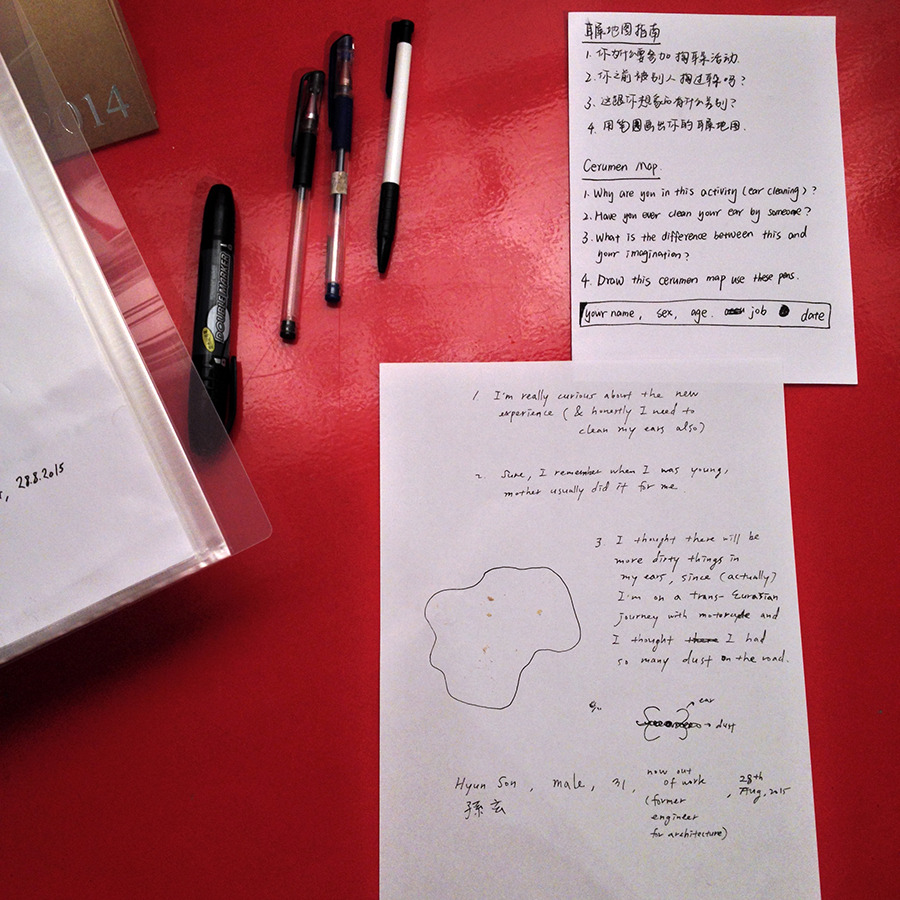 2014
DOUBLE MARKER
, 28.8.2015
耳屎地图指南
1. 你为什么要参加掏耳屎活动.
2. 你之前被别人掏过耳屎吗?
3. 这跟你想象的有什么差别?
4. 用笔圈画出你的耳屎地图.
Cerumen Map.
1. Why are you in this activity (ear cleaning)?
2. Have you ever clean your ear by someone?
3. What is the difference between this and
your imagination?
4. Draw this cerumen map use these pens.
your name, sex, age. job date
1. I'm really curious about the new
experience (& honestly I need to
clean my ears also)
2. Sure, I remember when I was young,
mother usually did it for me.
3. I thought there will be
more dirty things in
my ears, since (actually)
I'm on a trans-Eurasian
journey with motorcycle and
I thought I had
so many dust on the road.
ear
dust
Hyun Son, male, 31, now out of work (former engineer for architecture), 28th Aug, 2015
孫玄